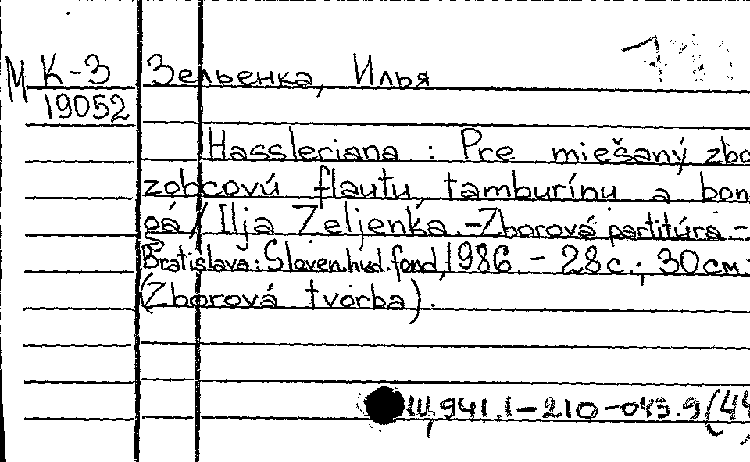 М К-3 Зельенка, Илья
19052
Hassleriana : Pre miešaný zbo
zobcovú flautu, tamburínu a bon
gá / Ilja Zeljenka. - Zborová partitúra -
Bratislava: Sloven.hud.fond, 1986 - 28с.; 30см
(Zborová tvorba).
Ш,941.1-210-045.9(44